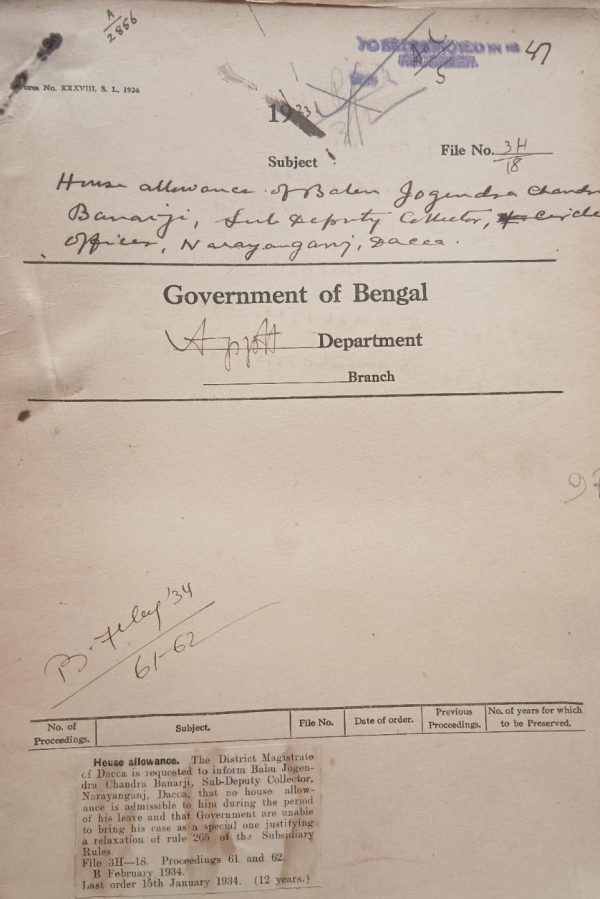 A
2856
47
5
Form No. XXXVIII, S. L, 1924
19
Subject
File No. 3H
18
House allowance of Babu Jogendra Chandra
Banarji, Sub Deputy Collector, Circle
Officer, Narayanganj, Dacca.
Government of Bengal
Appt Department
Branch
97
B. Feby '34
61-62
No. of Proceedings.
Subject.
File No.
Date of order.
Previous Proceedings.
No. of years for which to be Preserved.
House allowance. The District Magistrate
of Dacca is requested to inform Babu Jogen-
dra Chandra Banarji, Sub-Deputy Collector,
Narayanganj, Dacca, that no house allow-
ance is admissible to him during the period
of his leave and that Government are unable
to bring his case as a special one justifying
a relaxation of rule 265 of the Subsidiary
Rules.
File 3H—18. Proceedings 61 and 62.
B February 1934.
Last order 15th January 1934. (12 years.)